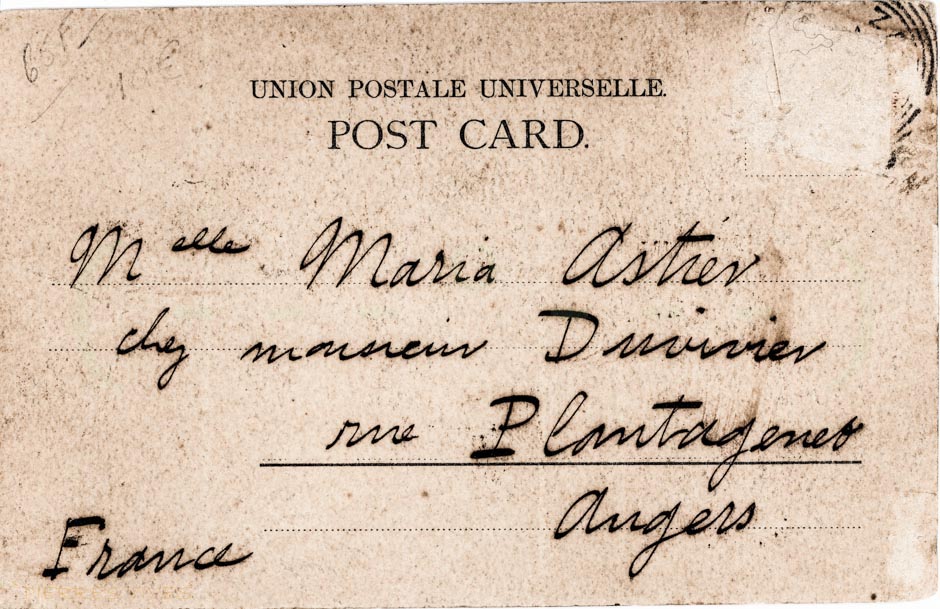 65F
10€
UNION POSTALE UNIVERSELLE.
POST CARD.
Melle Maria Astier
chez monsieur Duvivier
rue Plantagenet
Angers
France